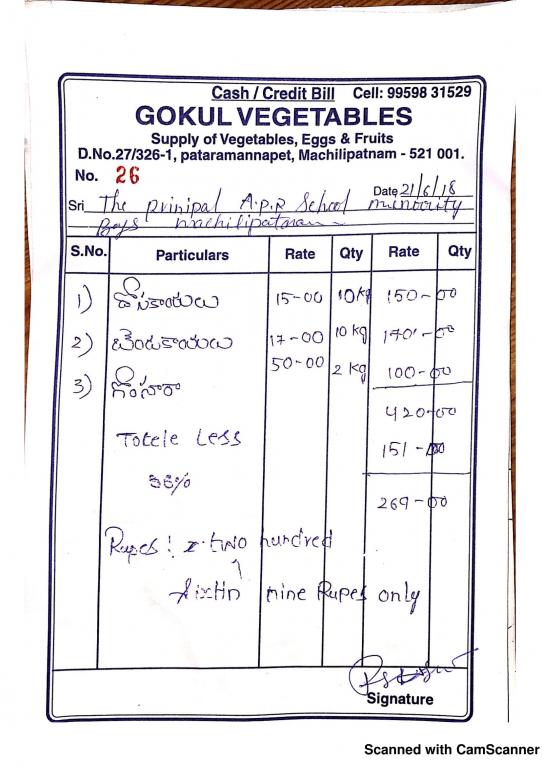 Cash / Credit Bill Cell: 99598 31529
GOKUL VEGETABLES
Supply of Vegetables, Eggs & Fruits
D.No.27/326-1, pataramannapet, Machilipatnam - 521 001.
No. 26
Date 21/6/18
Sri The prinipal A.P.R School minourity
Boys machilipatnam
S.No. Particulars Rate Qty Rate Qty
1) దోసకాయలు 15-00 10 kg 150-00
2) బెండకాయలు 17-00 10 kg 170-00
3) గోంగూరా 50-00 2 kg 100-00
420-00
Totele Less 151-00
36%
269-00
Rupes: two hundred
Sixtin nine Rupes only
Signature
Scanned with CamScanner